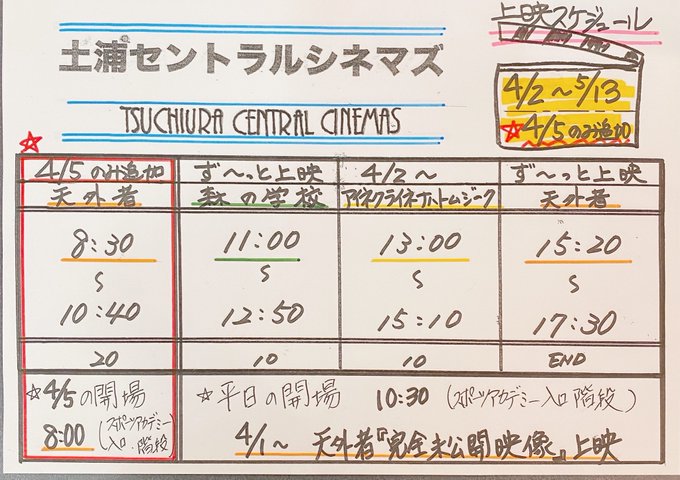 上映スケジュール
土浦セントラルシネマズ
TSUCHIURA CENTRAL CINEMAS
4/2～5/13
☆4/5のみ追加
☆
4/5のみ追加 ず～っと上映 4/2～ ず～っと上映
天外者 森の学校 アイネクライネナハトムジーク 天外者
8:30 11:00 13:00 15:20
S S S S
10:40 12:50 15:10 17:30
20 10 10 END
☆4/5の開場
8:00 (スポーツアカデミー入口階段)
☆平日の開場 10:30 (スポーツアカデミー入口階段)
4/1～ 天外者『完全未公開映像』上映